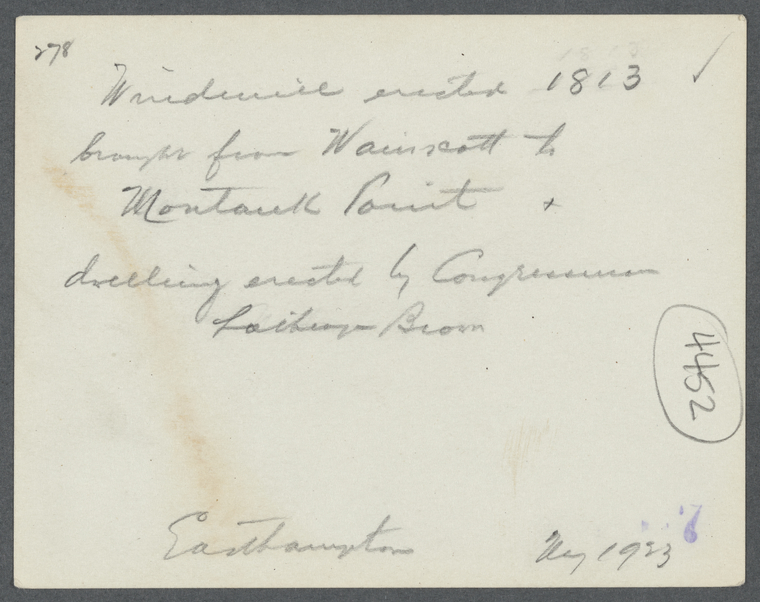 278
Windmill erected 1813 ✓
brought from Wainscott to
Montauk Point +
dwelling erected by Congressman
Lathrop Brown
4452
Easthampton Aug 1923